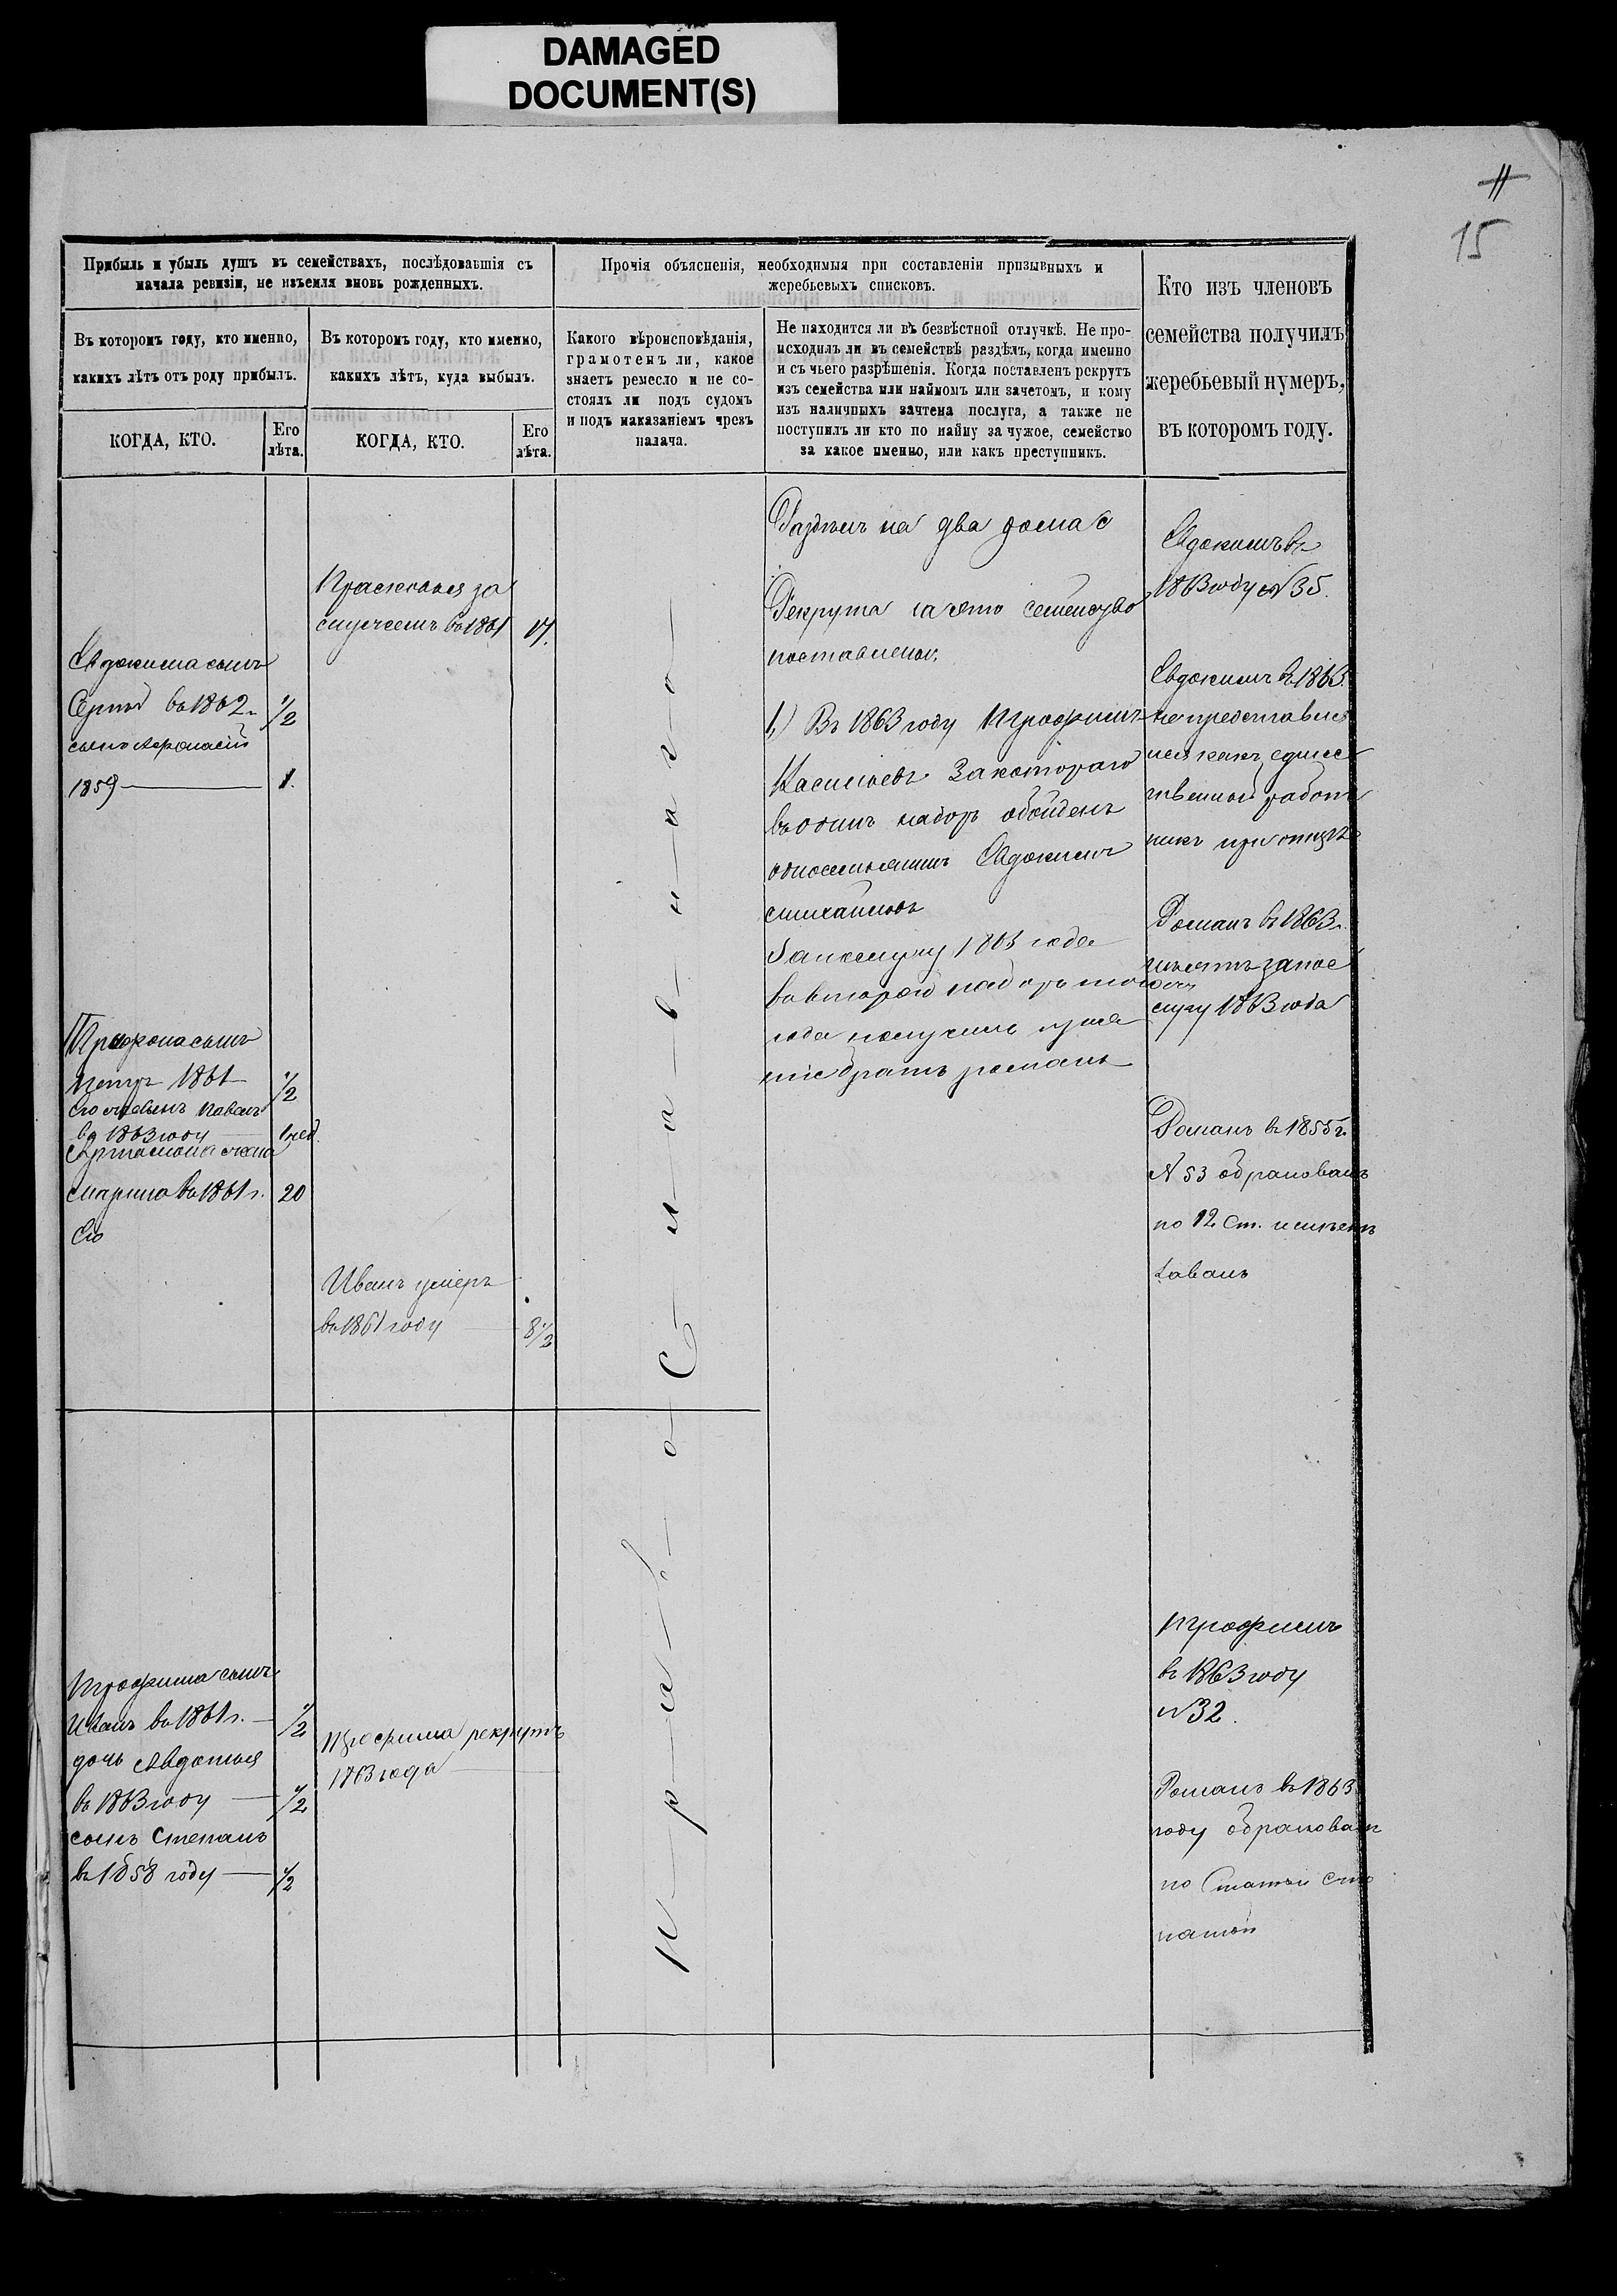 DAMAGED
DOCUMENT(S)
11
15
Прибыль и убыль душъ въ семействахъ, послѣдовавшія съ
начала ревизіи, не изъемля вновь рожденныхъ.
Прочія объясненія, необходимыя при составленіи призывныхъ и
жеребьевыхъ списковъ.
Кто изъ членовъ
семейства получилъ
жеребьевый нумеръ,
въ которомъ году.
Въ которомъ году, кто именно,
какихъ лѣтъ отъ роду прибылъ.
Въ которомъ году, кто именно,
какихъ лѣтъ, куда выбылъ.
Какого вѣроисповѣданія,
грамотенъ ли, какое
знаетъ ремесло и не со-
стоялъ ли подъ судомъ
и подъ наказаніемъ чрезъ
палача.
Не находится ли въ безвѣстной отлучкѣ. Не про-
исходилъ ли въ семействѣ раздѣлъ, когда именно
и съ чьего разрѣшенія. Когда поставленъ рекрутъ
изъ семейства или наймомъ или зачетомъ, и кому
изъ наличныхъ зачтена послуга, а также не
поступилъ ли кто по найму за чужое, семейство
за какое именно, или какъ преступникъ.
КОГДА, КТО.
Его
лѣта.
КОГДА, КТО.
Его
лѣта.
Евдокима сынъ
Сергѣй въ 1862
1/2
сынъ Афонасій
1859
1.
Трифона сынъ
Петръ 1861
1/2
Его сынъ Павелъ
въ 1863 году
1 нед
Артамона жена
Марина въ 1861 г.
20
Его
Трофима сынъ
Иванъ въ 1861 г.
1/2
дочь Авдотья
въ 1863 году
1/2
сынъ Степанъ
въ 1858 году
1/2
Прасковья за
въ 1861
17.
Иванъ умеръ
въ 1861 году
8 1/2
Трофима рекрутъ
1863 года
Православнаго
Раздѣлъ на два дома с
Рекрута семейство
поставлено.
1.) Въ 1863 году Трофимъ
Васильевъ За котораго
въ одинъ наборъ обойденъ
односемьянинъ Евдокимъ
Михайловъ
За послугу 1863 года
во второй наборъ того
года получилъ
братъ Романъ
Евдокимъ въ
1863 году № 35.
Евдокимъ въ 1863.
не представлен
какъ единс
твенной работ
никъ при отцѣ
Романъ въ 1863 г.
имѣетъ за пос
лугу 1863 года
Романъ въ 1855 г.
№ 53 обракованъ
по 12 ст.
Трофимъ
въ 1863 году
№ 32.
Романъ въ 1863
году обракованъ
по Статьи